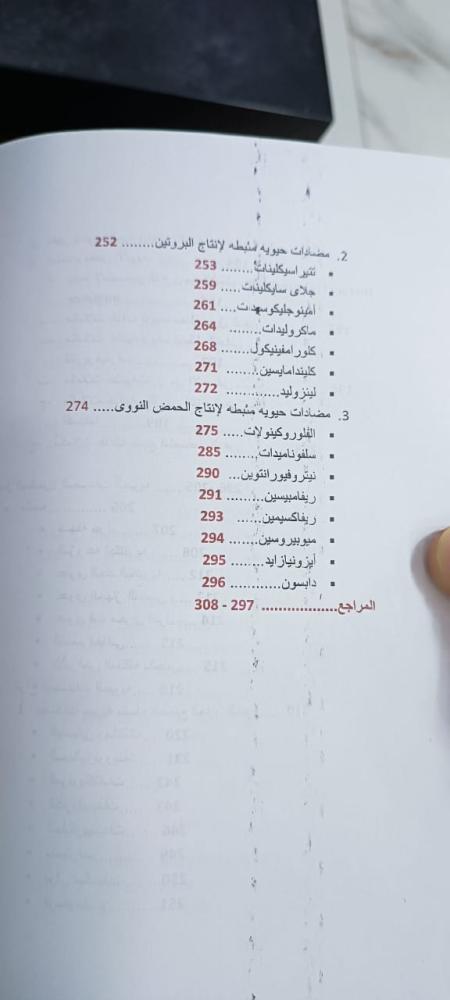 2. مضادات حيويه مثبطه لإنتاج البروتين........ 252
▪ تتيراسيكلينات........ 253
▪ جلاى سايكلينات..... 259
▪ أمينوجليكوسيدات.... 261
▪ ماكروليدات......... 264
▪ كلورامفينيكول....... 268
▪ كليندامايسين......... 271
▪ لينزوليد............. 272
3. مضادات حيويه مثبطه لإنتاج الحمض النووى..... 274
▪ الفلوروكينولات..... 275
▪ سلفوناميدات........ 285
▪ نيتروفيورانتوين... 290
▪ ريفامبيسين......... 291
▪ ريفاكسيمين...... 293
▪ ميوبيروسين........ 294
▪ أيزونيازايد......... 295
▪ دابسون............ 296
المراجع.................. 297 - 308